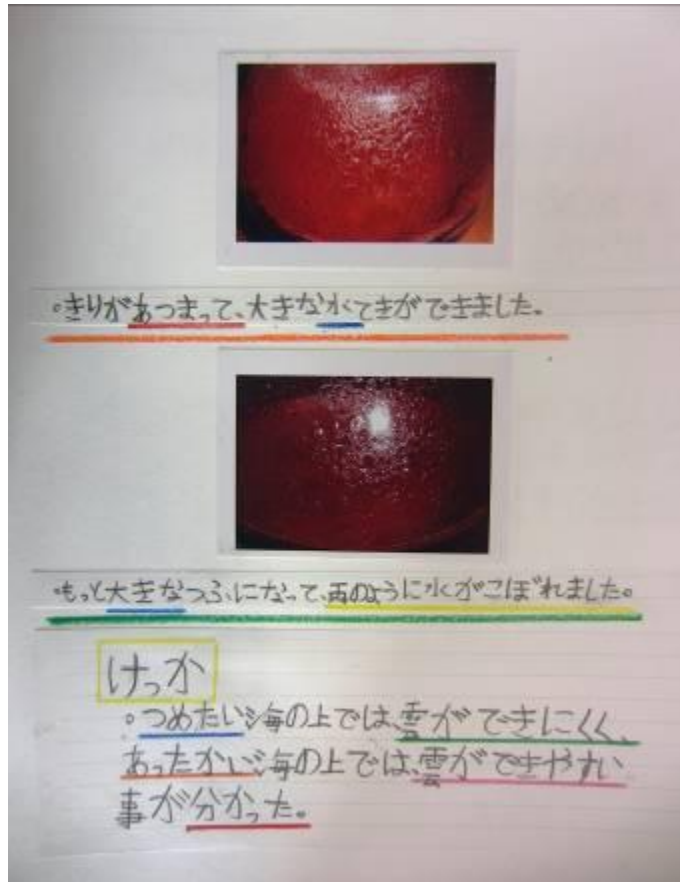 ・きりがあつまって、大きな水てきができました。
・もっと大きなつぶになって、雨のように水がこぼれました。
けっか
・つめたい海の上では、雲ができにくく、
あったかい海の上では、雲ができやすい
事が分かった。